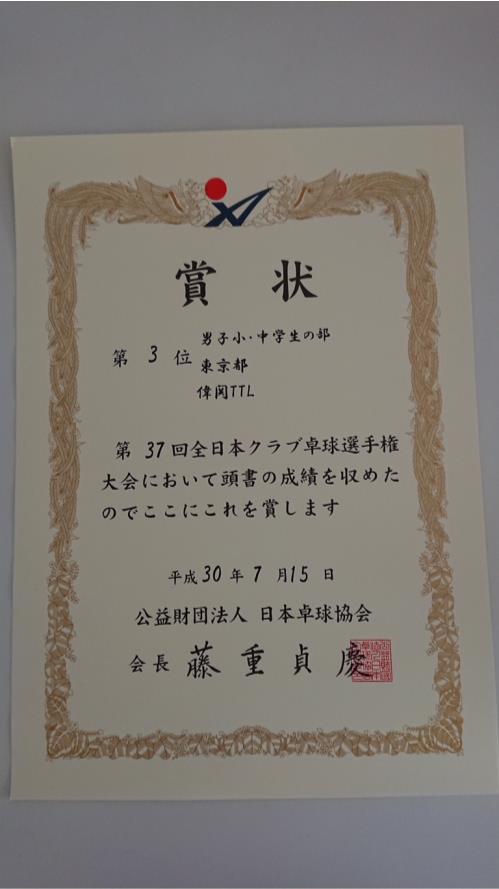 賞状
第3位
男子小・中学生の部
東京都
偉関TTL
第37回全日本クラブ卓球選手権
大会において頭書の成績を収めた
のでここにこれを賞します
平成30年7月15日
公益財団法人 日本卓球協会
会長 藤重貞慶